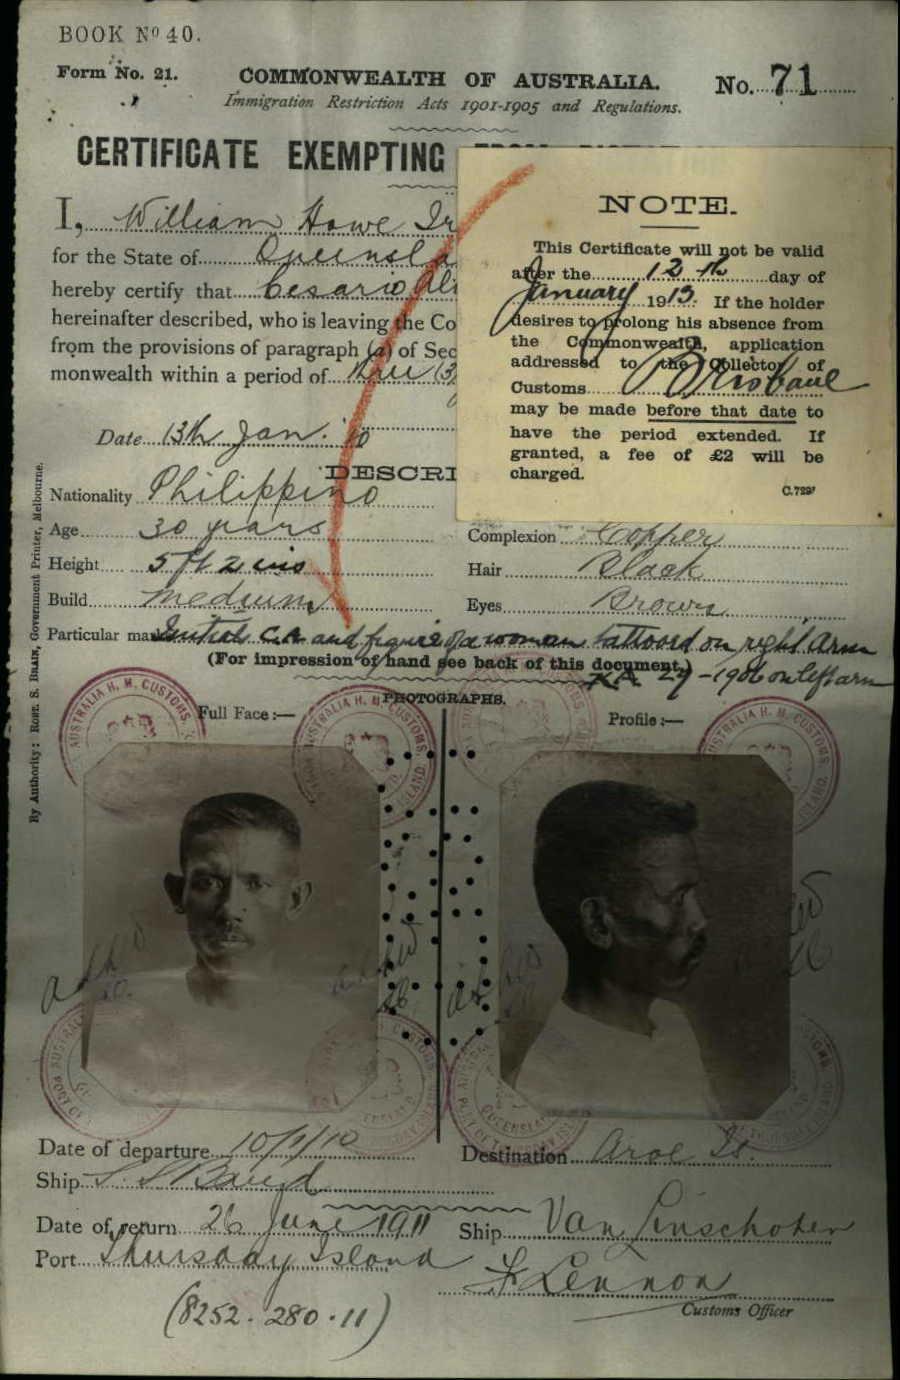 BOOK Nº 40.
Form No. 21.
COMMONWEALTH OF AUSTRALIA.
No. 71
Immigration Restriction Acts 1901-1905 and Regulations.
CERTIFICATE EXEMPTING
I, William Howe Ir
for the State of Queensla
hereby certify that Cesario
hereinafter described, who is leaving the Co
from the provisions of paragraph (a) of Sec
monwealth within a period of three (3
Date 13th Jan. 10
DESCRI
NOTE.
This Certificate will not be valid
after the 12th day of
January 1913. If the holder
desires to prolong his absence from
the Commonwealth, application
addressed to the Collector of
Customs Brisbane
may be made before that date to
have the period extended. If
granted, a fee of £2 will be
charged.
C.729
Nationality Philippino
Age 30 years
Complexion Copper
Height 5 ft 2 ins
Hair Black
Build medium
Eyes Brown
Particular marks Initial C.A and figure of a woman tattooed on right arm
(For impression of hand see back of this document.)
KA 29-1906 on left arm
PHOTOGRAPHS.
Full Face:—
Profile:—
By Authority: ROBT. S. BRAIN, Government Printer, Melbourne.
AUSTRALIA H. M. CUSTOMS
AUSTRALIA H. M. CUSTOMS
AUSTRALIA H. M. CUSTOMS
Date of departure 10/1/10
Destination Aroe Is.
Ship
Date of return 26 June 1911
Ship Van Linschoten
Port Thursday Island
F Lennon
Customs Officer
(8252.280.11)